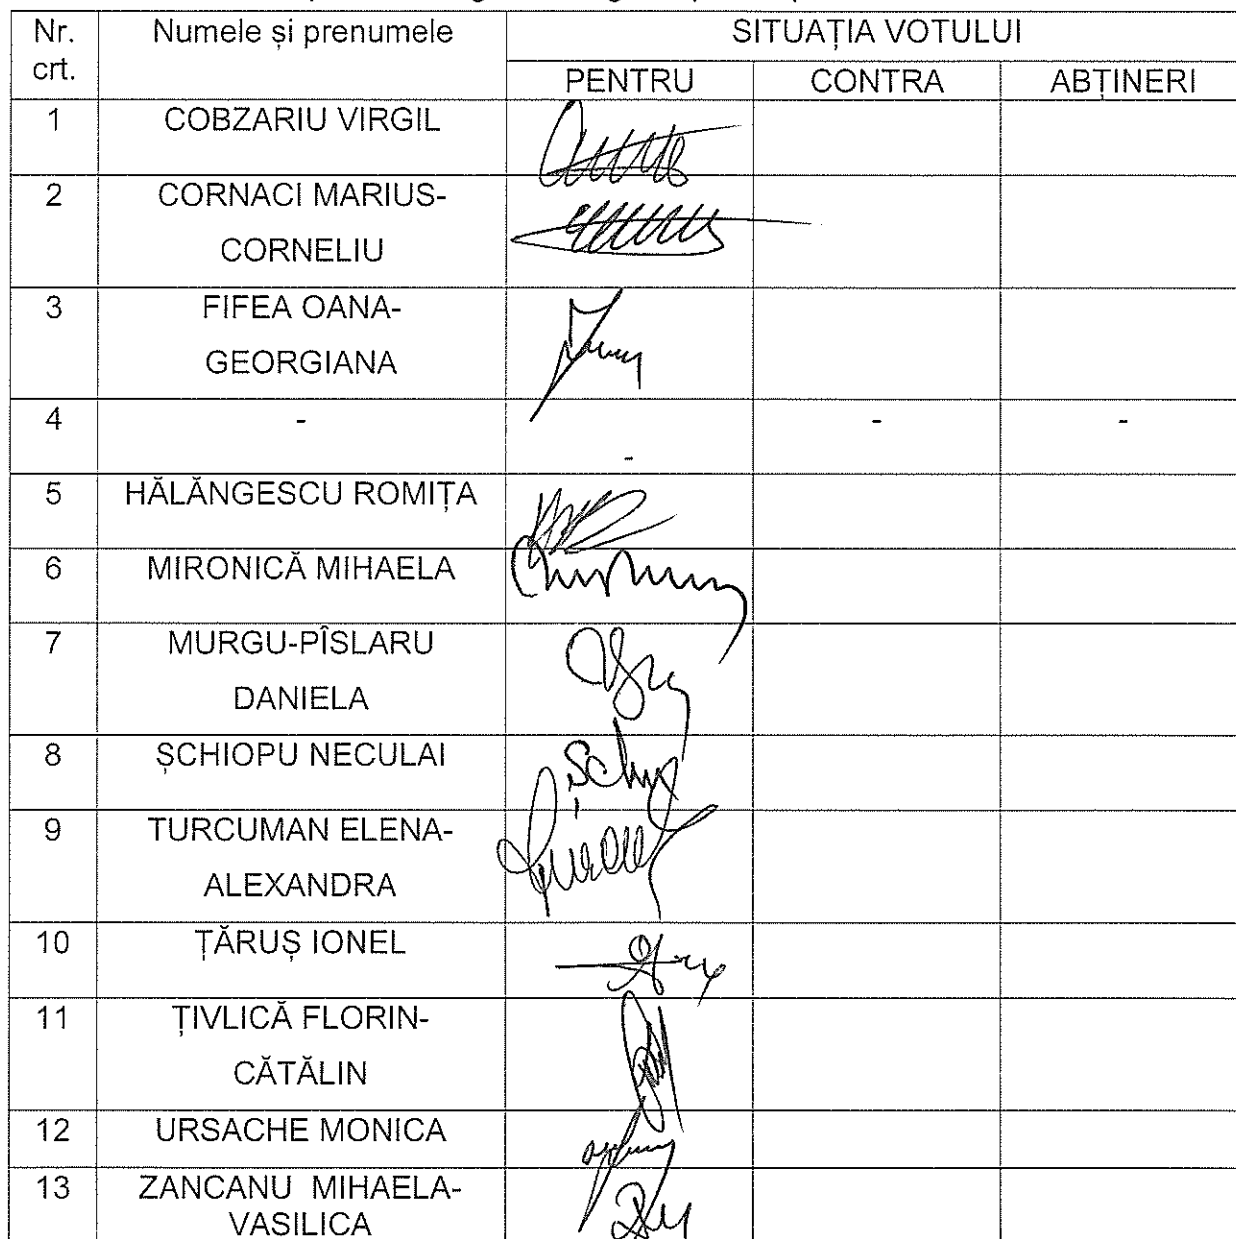 Nr. crt. Numele și prenumele SITUAȚIA VOTULUI
PENTRU CONTRA ABȚINERI
1 COBZARIU VIRGIL
2 CORNACI MARIUS-
CORNELIU
3 FIFEA OANA-
GEORGIANA
4 - - - -
5 HĂLĂNGESCU ROMIȚA
6 MIRONICĂ MIHAELA
7 MURGU-PÎSLARU
DANIELA
8 ȘCHIOPU NECULAI
9 TURCUMAN ELENA-
ALEXANDRA
10 ȚĂRUȘ IONEL
11 ȚIVLICĂ FLORIN-
CĂTĂLIN
12 URSACHE MONICA
13 ZANCANU MIHAELA-
VASILICA